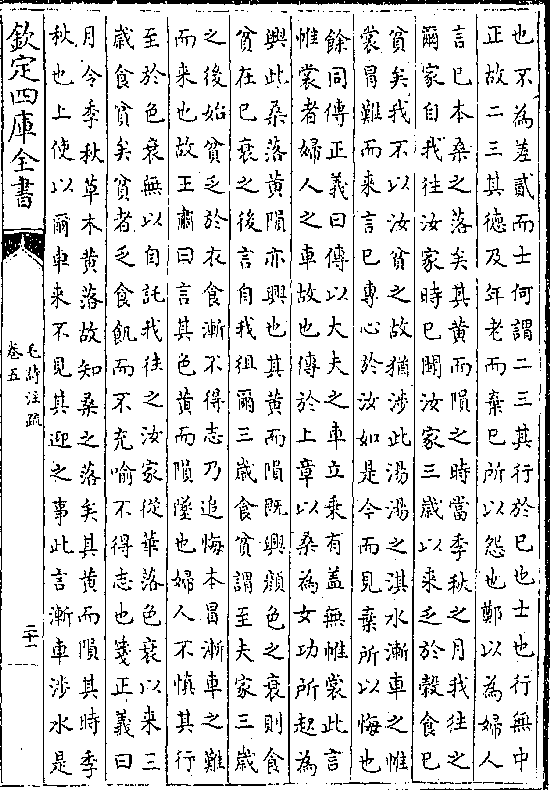 也不為差貳而士何謂二三其行於已也士也行無中
正故二三其德及年老而棄已所以怨也鄭以為婦人
言已本桑之落矣其黄而隕之時當季秋之月我往之
爾家自我往汝家時已聞汝家三歲以來乏於穀食已
貧矣我不以汝貧之故猶涉此湯湯之淇水漸車之帷
裳冒難而來言已專心於汝如是今而見棄所以悔也
餘同傳正義曰傳以大夫之車立乗有蓋無帷裳此言
帷裳者婦人之車故也傳於上章以桑為女功所起為
興此桑落黄隕亦興也其黄而隕既興顔色之衰則食
貧在已衰之後言自我徂爾三歲食貧謂至夫家三歲
之後始貧乏於衣食漸不得志乃追悔本冒漸車之難
而来也故王肅曰言其色黄而隕墜也婦人不慎其行
至於色衰無以自託我往之汝家從華落色衰以来三
歲食貧矣貧者乏食飢而不充喻不得志也箋正義曰
月令季秋草木黄落故知桑之落矣其黄而隕其時季
秋也上使以爾車来不見其迎之事此言漸車涉水是
欽定四庫全書
毛詩注疏
卷五
二十一